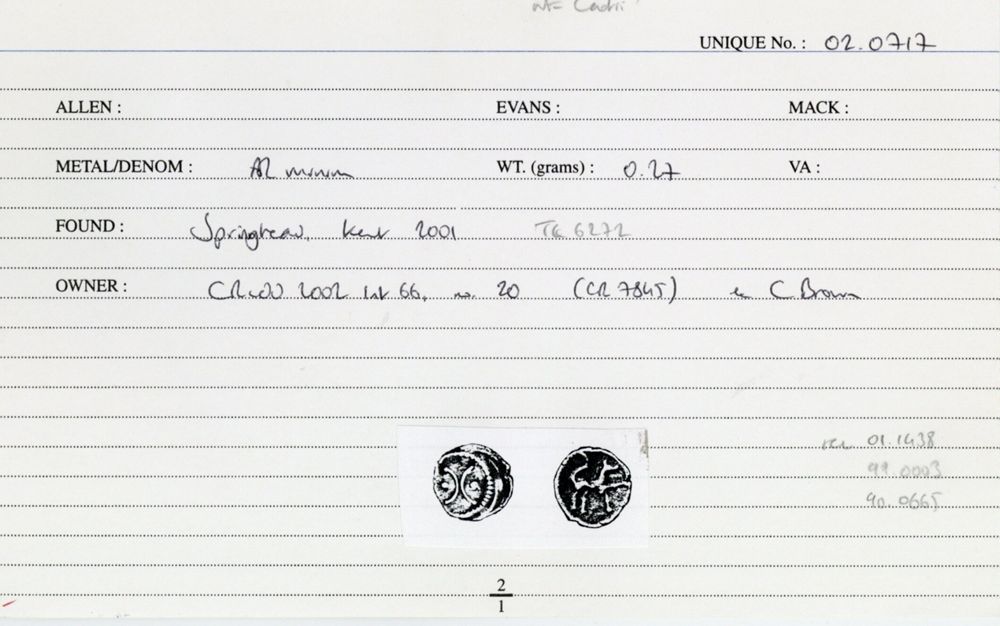 UNIQUE No. : 02.0717
ALLEN : EVANS : MACK :
METAL/DENOM : AR minim WT. (grams) : 0.27 VA :
FOUND : Springhead, Kent 2001 TQ 6272
OWNER : 2002 list 66, no. 20 (CR 7845) ex C Brown
01.1438
99.0003
90.0665
2
1